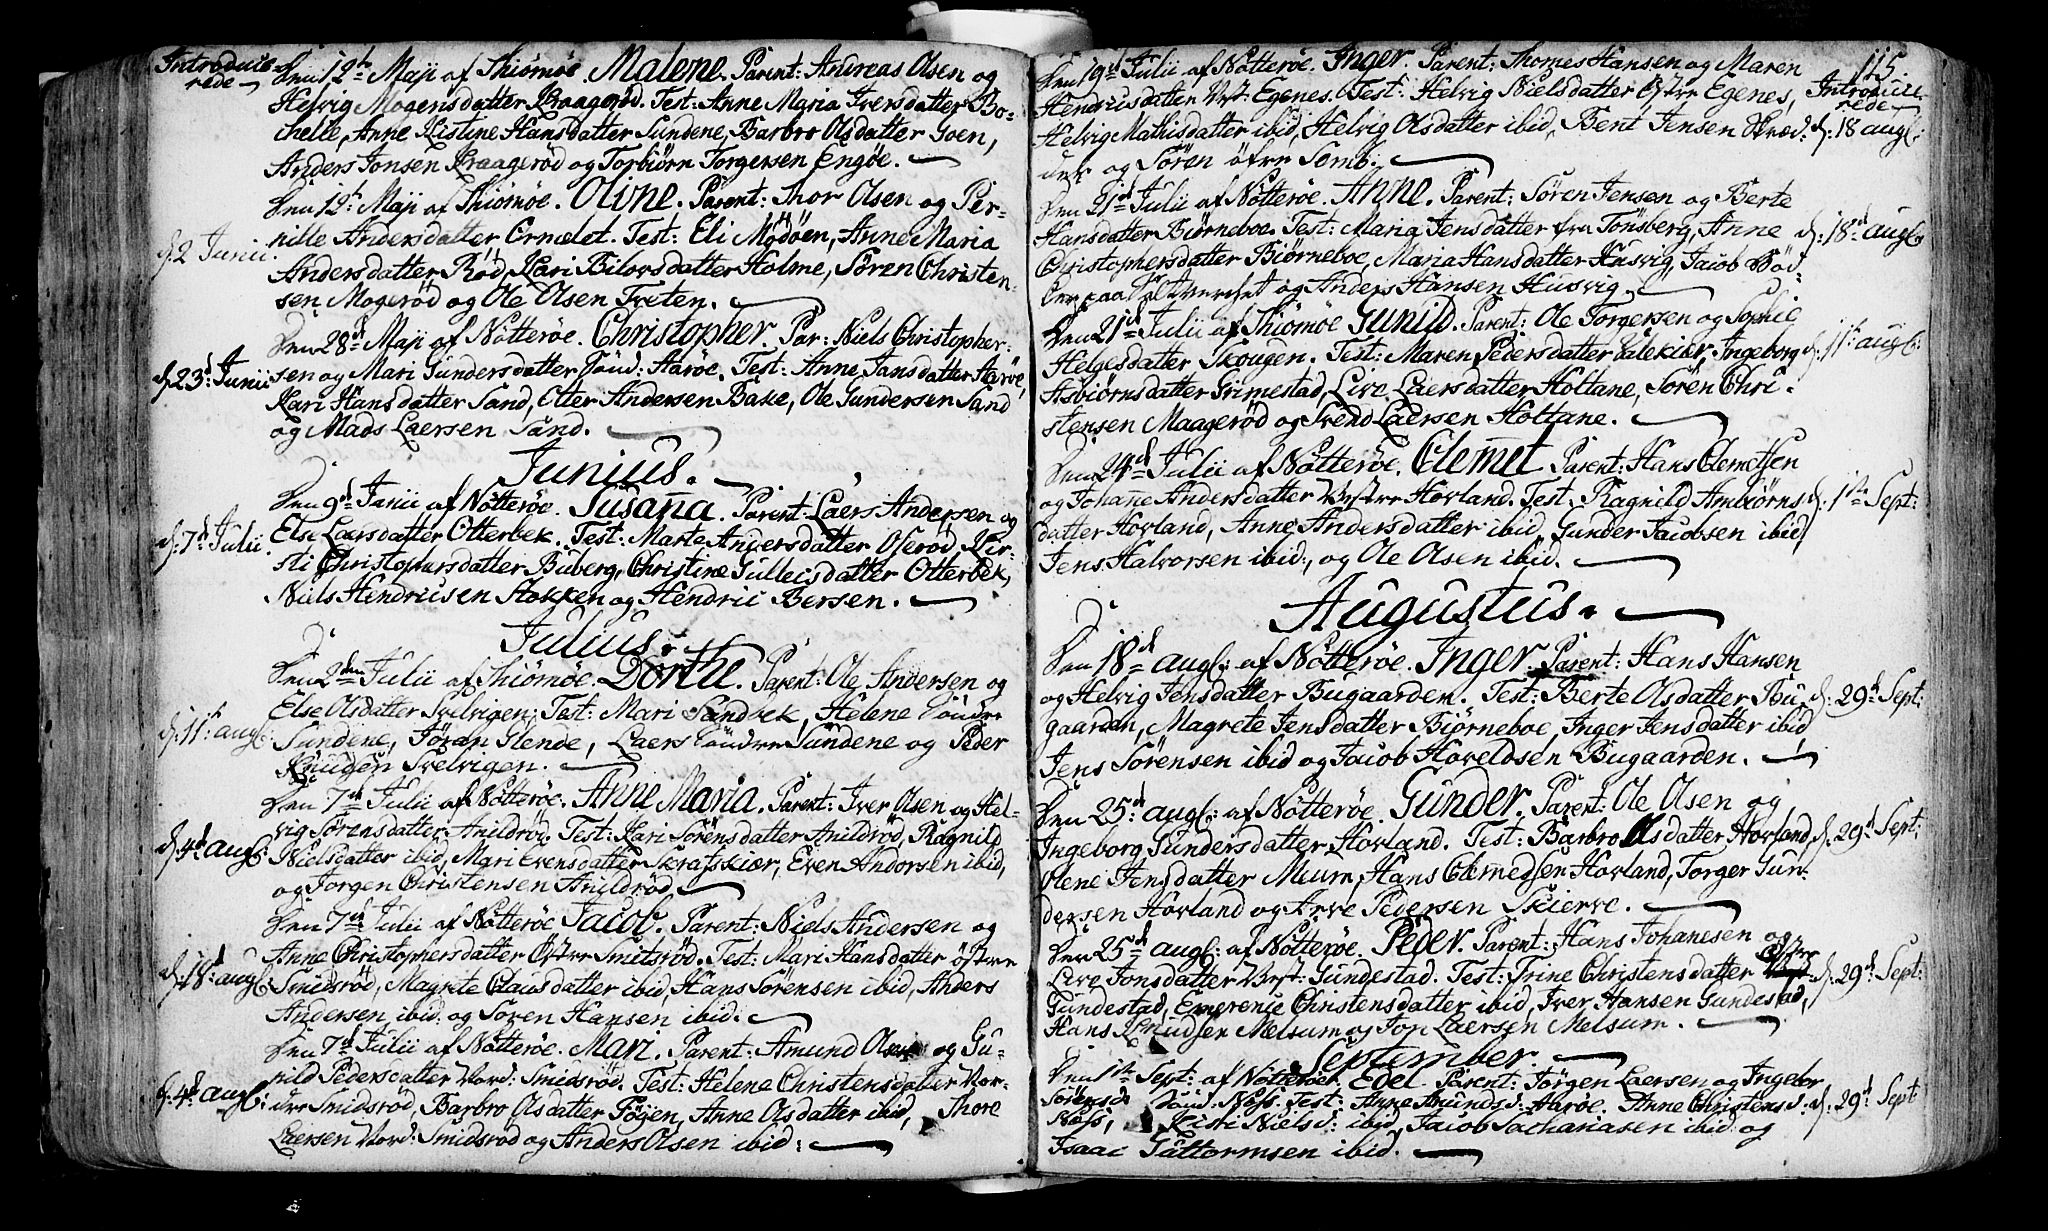 Introduce-
rede
Den 12te Maji af Thiömöe. Malene. Parent: Andreas Olsen og
Helvig Mogensdatter Kraagerød. Test: Anne Maria Iversdatter Bo-
lhelle, Anne Kistine Hansdatter Sundene, Barbro Olsdatter Goen,
Anders Jonsen Kraagerød og Torbiörn Torgersen Engöe.
Den 12te Maji af Thiömöe. Olivne. Parent: Thor Olsen og Per-
d: 2 Junii. nille Andersdatter Ormelet. Test: Eli Mödöen, Anne Maria
Andersdatter Röd, Kari Bilovsdatter Holme, Sören Christen-
sen Mogeröd og Ole Olsen Treten.
Den 28d Maji af Nötteröe. Christopher. Par: Niels Christopher-
d. 23d Junii sen og Mari Gundersdatter Sönd: Aaröe. Test: Anne Jansdatter Aaröe,
Kari Hansdatter Sand, Otter Andersen Bake, Ole Gundersen Sand
og Mads Laersen Sand.
Junius.
Den 9d Junii af Nötteröe. Susana. Parent: Laers Andersen og
d: 7d Julii. Else Laersdatter Otterbek. Test: Marte Andersdatter Oseröd, Kir-
sti Christophersdatter Buberg, Christine Gulleisdatter Otterbek,
Niels Hendricsen Hokken og Hendric Bersen.
Julius.
Den 2den Julii af Thiömöe. Dorthe. Parent: Ole Andersen og
Else Olsdatter Svelvigen. Test: Mari Sandbek, Helene Söndre
d: 11te augl: Sundene, Jöran Stende, Laers Söndre Sundene og Peder
Knudsen Svelvigen.
Den 7d Julii af Nötteröe. Anne Maria. Parent: Iver Olsen og Hel-
vig Sörensdatter Anildröd. Test: Kari Sörensdatter Anildröd, Ragnild
d. 4d augl: Nielsdatter ibid, Mari Evensdatter Skrafskiær, Even Andorsen ibid,
og Jorgen Christensen Anildröd.
Den 7d Julii af Nötteröe Jacob. Parent: Niels Andersen og
Anne Christophersdatter Östre Smitsröd. Test: Mari Hansdatter östre
d. 18d augl: Smidsröd, Magrete Clausdatter ibid, Hans Sörensen ibid, Anders
Andersen ibid: og Sören Hansen ibid:
Den 7d Julii af Nötteröe. Mari. Parent: Amund Olsen og Gu-
nild Pedersdatter Nord: Smidsröd. Test: Helene Christensdatter Nor-
d. 4d augl: dre Smidsröd, Barbro Olsdatter Föyen, Anne Olsdatter ibid, Thore
Laersen Nord: Smidsröd og Anders Olsen ibid:
115.
Den 19d Julii af Nötteröe. Inger. Parent: Thomes Hansen og Maren
Hendricsdatter Vest: Egenes. Test: Helvig Nielsdatter Östre Egenes, Introduce-
rede
Helvig Mathisdatter ibid, Helvig Olsdatter ibid, Bent Jensen Skræd- d: 18 augl:
der og Sören öfre Semb.
Den 21d Julii af Nötteröe. Anne. Parent: Sören Jensen og Berte
Hansdatter Biörneboe. Test: Maria Jensdatter fra Tönsberg, Anne d: 18d augl:
Christophersdatter Biörneboe, Maria Hansdatter Husvig, Jacob Böd-
ker paa Saltverchet og Anders Hansen Husvig.
Den 21d Julii af Thiömöe Gunild. Parent: Ole Torgersen og Sophie
Helgesdatter Skougen. Test: Maren Pedersdatter Galekier, Ingeborg d: 11te augl:
Asbiörnsdatter Grimestad, Live Laersdatter Holtane, Sören Chri-
stensen Maageröd og Svend Laersen Holtane.
Den 24d Julii af Nötteröe. Clemet. Parent: Hans Clemetsen
og Johane Andersdatter Vestre Hovland. Test: Ragnild Ambiörns- d. 1te Sept:
datter Hovland, Anne Andersdatter ibid, Gunder Jacobsen ibid,
Jens Halvorsen ibid:, og Ole Olsen ibid.
Augustus.
Den 18d augl: af Nötteröe. Inger. Parent: Hans Hansen
og Helvig Jensdatter Bugaarden. Test: Berte Olsdatter Bu- d. 29d Sept:
gaarden, Magrete Jensdatter Biörneboe, Inger Jensdatter ibid,
Jens Sörensen ibid og Jacob Hoveldsen Bugaarden.
Den 25d augl: af Nötteröe. Gunder. Parent: Ole Olsen og
Ingeborg Gundersdatter Hovland. Test: Barbro Olsdatter Hovland, d. 29d Sept:
Olene Jensdatter Meum, Hans Clemedsen Hovland, Torger Gun-
dersen Hovland og Arve Pedersen Skierve.
Den 25d augl: af Nötteröe. Peder. Parent: Hans Johanesen og
Live Jonsdatter Vest: Gundestad. Test: Trine Christensdatter Östre d. 29d Sept:
Gundestad, Emerence Christensdatter ibid, Iver Hansen Gundestad,
Hans Knudsen Melsum og Jop Laersen Melsum.
September.
Den 1te Sept: af Nötteröe. Edel. Parent: Jörgen Laersen og Ingebor
Sörensd: Sund: Næss. Test: Anne Amundsd: Aaröe. Anne Christensd: d. 29d Sept
Næss, Kisti Nielsd: ibid, Jacob Sachariasen ibid: og
Isaac Guttormsen ibid.